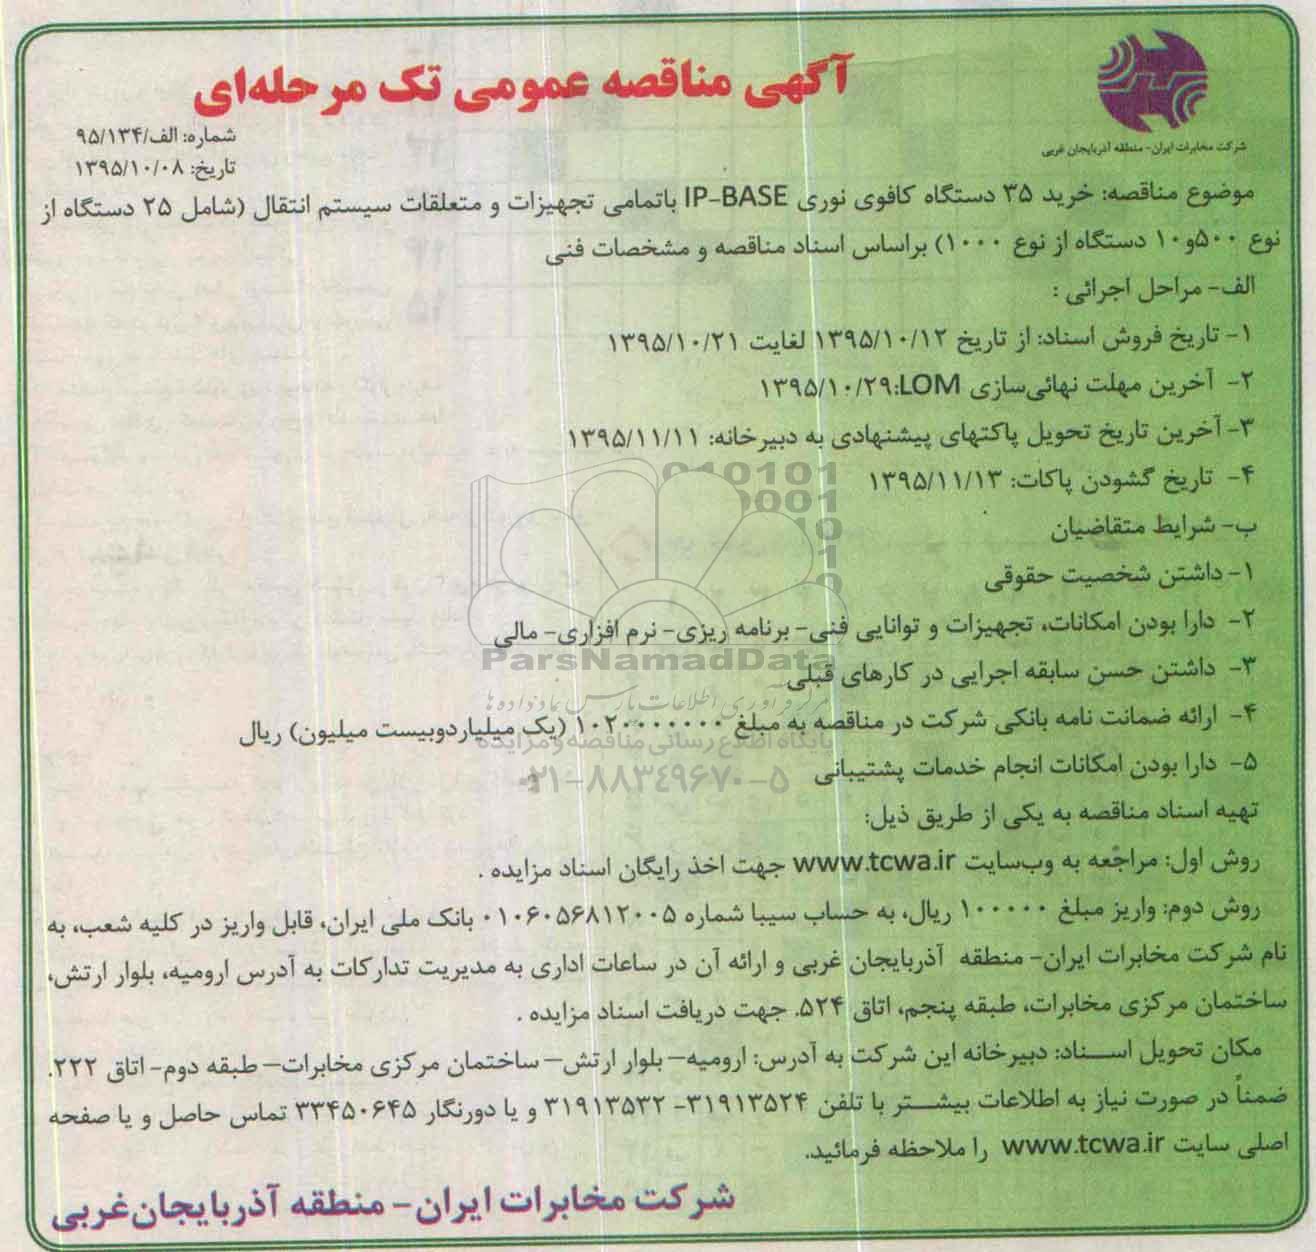 آگهی مناقصه عمومی تک مرحله‌ای
شرکت مخابرات ایران- منطقه آذربایجان غربی
شماره: الف/۹۵/۱۳۴
تاریخ: ۱۳۹۵/۱۰/۰۸
موضوع مناقصه: خرید ۳۵ دستگاه کافوی نوری IP-BASE باتمامی تجهیزات و متعلقات سیستم انتقال (شامل ۲۵ دستگاه از
نوع ۵۰۰و۱۰ دستگاه از نوع ۱۰۰۰) براساس اسناد مناقصه و مشخصات فنی
الف- مراحل اجرائی :
۱- تاریخ فروش اسناد: از تاریخ ۱۳۹۵/۱۰/۱۲ لغایت ۱۳۹۵/۱۰/۲۱
۲- آخرین مهلت نهائی‌سازی LOM:۱۳۹۵/۱۰/۲۹
۳- آخرین تاریخ تحویل پاکتهای پیشنهادی به دبیرخانه: ۱۳۹۵/۱۱/۱۱
۴- تاریخ گشودن پاکات: ۱۳۹۵/۱۱/۱۳
ب- شرایط متقاضیان
۱- داشتن شخصیت حقوقی
۲- دارا بودن امکانات، تجهیزات و توانایی فنی- برنامه ریزی- نرم افزاری- مالی
ParsNamadData
۳- داشتن حسن سابقه اجرایی در کارهای قبلی
مرکز فرآوری اطلاعات پارس نماد داده ها
۴- ارائه ضمانت نامه بانکی شرکت در مناقصه به مبلغ ۱۰۲۰۰۰۰۰۰۰ (یک میلیاردوبیست میلیون) ریال
پایگاه اطلاع رسانی مناقصه و مزایده
۵- دارا بودن امکانات انجام خدمات پشتیبانی
۰۲۱-۸۸۳۴۹۶۷۰-۵
تهیه اسناد مناقصه به یکی از طریق ذیل:
روش اول: مراجعه به وب‌سایت www.tcwa.ir جهت اخذ رایگان اسناد مزایده .
روش دوم: واریز مبلغ ۱۰۰۰۰۰ ریال، به حساب سیبا شماره ۰۱۰۶۰۵۶۸۱۲۰۰۵ بانک ملی ایران، قابل واریز در کلیه شعب، به
نام شرکت مخابرات ایران- منطقه آذربایجان غربی و ارائه آن در ساعات اداری به مدیریت تدارکات به آدرس ارومیه، بلوار ارتش،
ساختمان مرکزی مخابرات، طبقه پنجم، اتاق ۵۲۴. جهت دریافت اسناد مزایده .
مکان تحویل اسـناد: دبیرخانه این شرکت به آدرس: ارومیه– بلوار ارتش– ساختمان مرکزی مخابرات– طبقه دوم- اتاق ۲۲۲.
ضمناً در صورت نیاز به اطلاعات بیشـتر با تلفن ۳۱۹۱۳۵۲۴- ۳۱۹۱۳۵۳۲ و یا دورنگار ۳۳۴۵۰۶۴۵ تماس حاصل و یا صفحه
اصلی سایت www.tcwa.ir را ملاحظه فرمائید.
شرکت مخابرات ایران- منطقه آذربایجان‌غربی